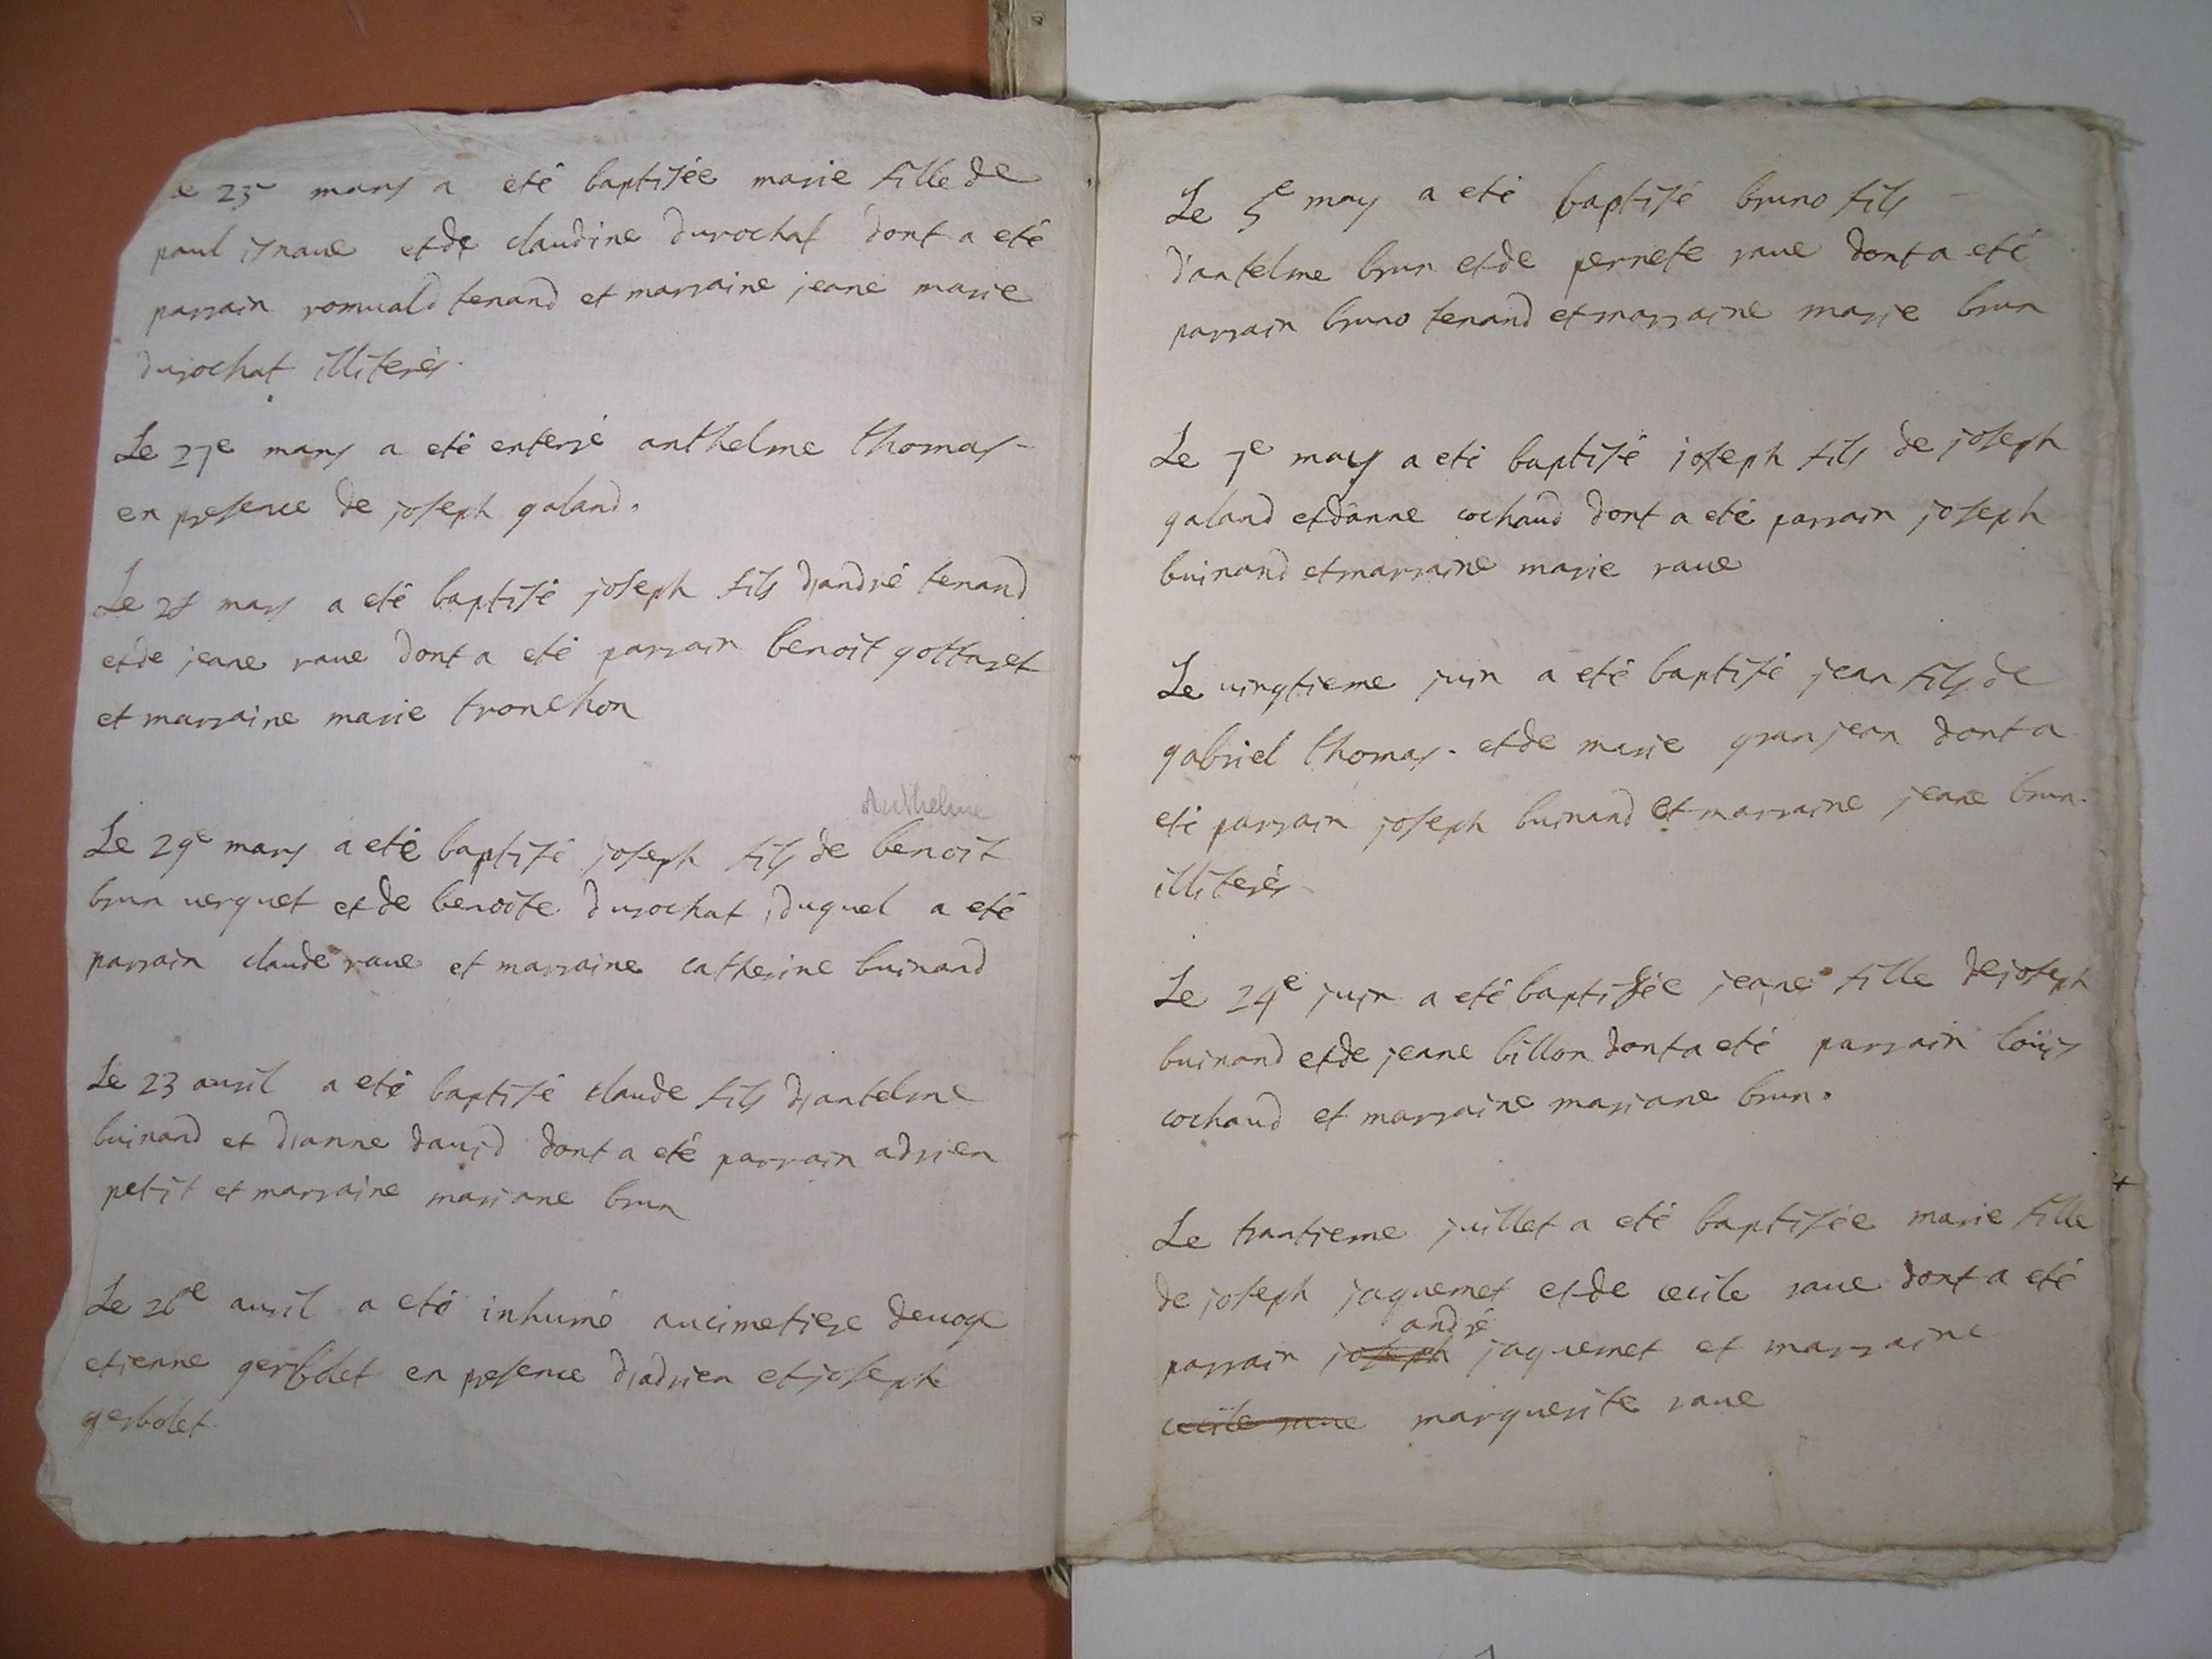 Le 23e mars a eté baptisée marie fille de
paul isnaue et de claudine durochat dont a eté
parrain romuald tenand et marraine jeane marie
durochat illiterés.
Le 27e mars a eté enterré anthelme thomas
en presence de joseph galand.
Le 28 mars a eté baptisé joseph fils d'andré tenand
et de jeane raue dont a eté parrain benoit gottaret
et marraine marie tronchon
Anthelme
Le 29e mars a eté baptisé joseph fils de benoit
brun uerguet et de benoite durochat, duquel a eté
parrain claude raue et marraine catherine buinand
Le 23 auril a eté baptisé claude fils d'antelme
buinand et d'anne dauid dont a eté parrain adrien
petit et marraine mariane brun
Le 26e auril a eté inhumé au cimetiere de
etienne gerbolet en presence d'adrien et joseph
gerbolet
Le 5e may a eté baptisé bruno fils
d'antelme brun et de pernete raue dont a eté
parrain bruno tenand et marraine marie brun
Le 7e may a eté baptisé joseph fils de joseph
galand et d'anne cochaud dont a eté parrain joseph
buinand et marraine marie raue
Le uingtieme juin a eté baptisé jean fils de
gabriel thomas. et de marie granjean dont a
eté parrain joseph buinand et marraine jeane brun.
illiterés
Le 24e juin a eté baptisée jeane fille de joseph
buinand et de jeane billon dont a eté parrain loüis
cochaud et marraine mariane brun.
Le trantieme juillet a eté baptisée marie fille
de joseph jaquemet et de cecile raue dont a eté
andré
parrain joseph jaquemet et marraine
cecile raue marguerite raue